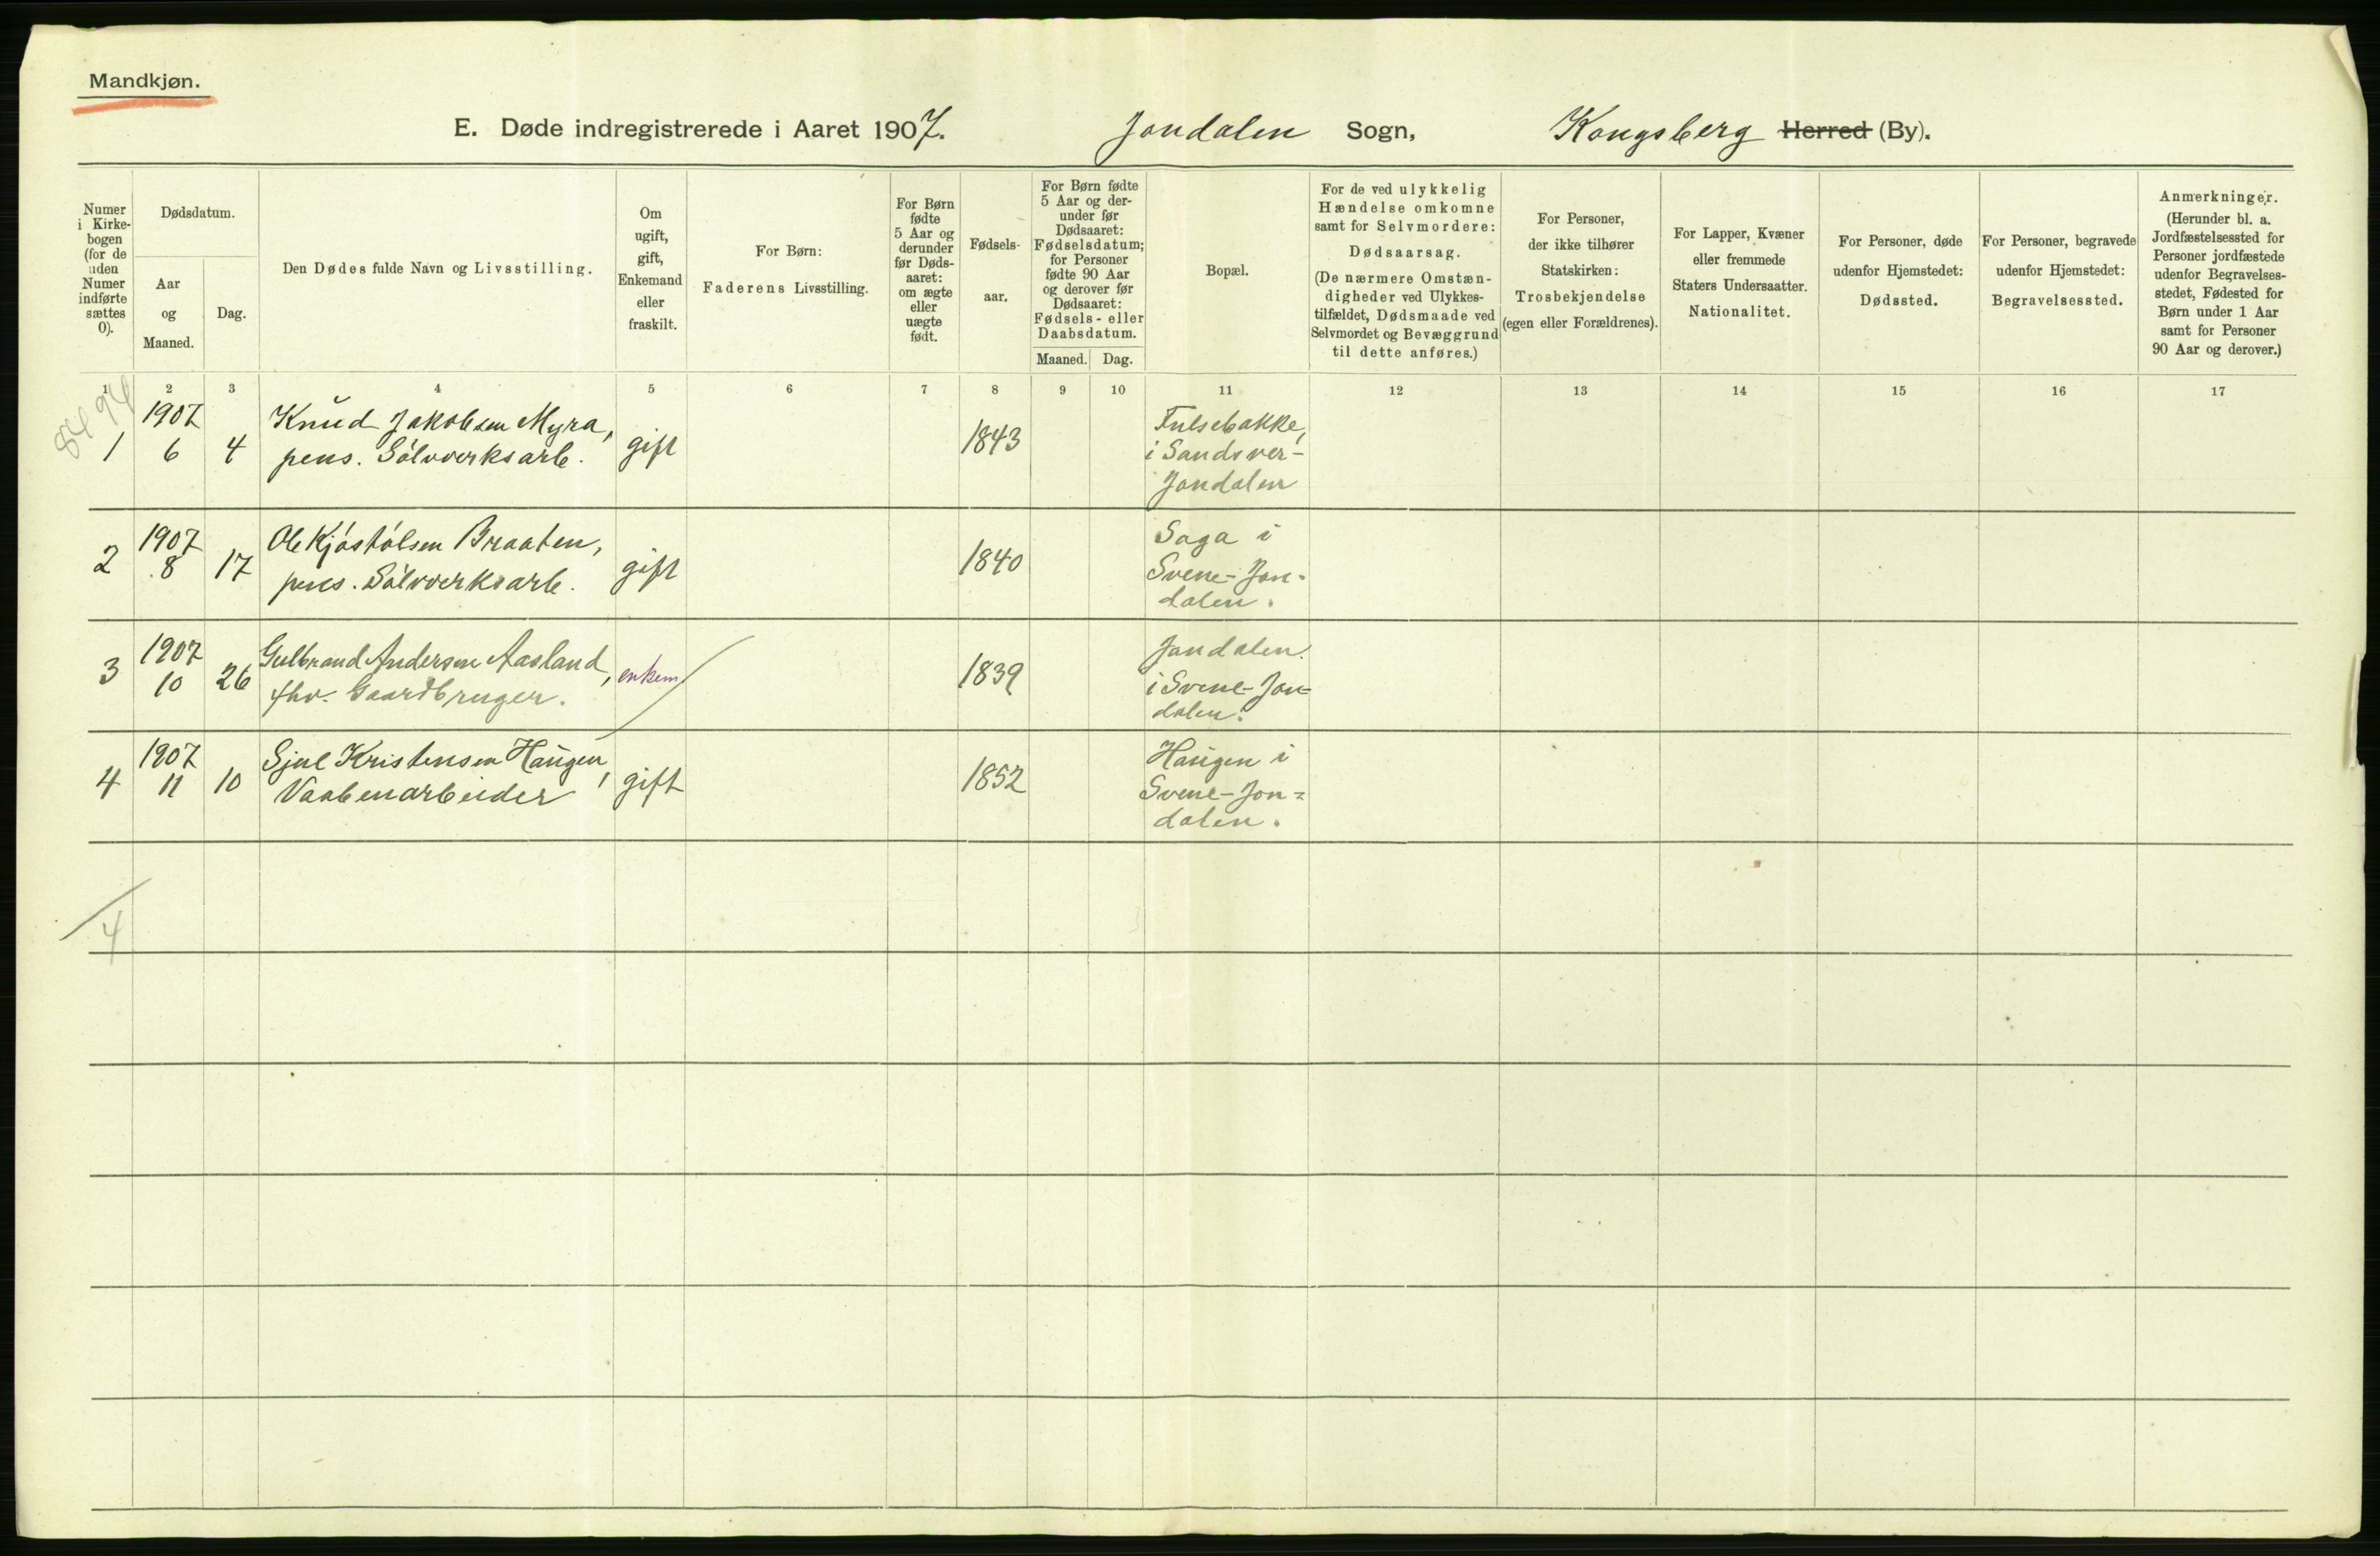 Mandkjøn.
E. Døde indregistrerede i Aaret 1907. Jondalen Sogn, Kongsberg Herred (By).
Numer i Kirkebogen (for de uden Numer indførte sættes 0).
Dødsdatum.
Aar og Maaned.
Dag.
Den Dødes fulde Navn og Livsstilling.
Om ugift, gift, Enkemand eller fraskilt.
For Børn: Faderens Livsstilling.
For Børn fødte 5 Aar og derunder før Dødsaaret: om ægte eller uægte født.
Fødselsaar.
For Børn fødte 5 Aar og derunder før Dødsaaret: Fødselsdatum; for Personer fødte 90 Aar og derover før Dødsaaret: Fødsels- eller Daabsdatum.
Maaned. Dag.
Bopæl.
For de ved ulykkelig Hændelse omkomne samt for Selvmordere: Dødsaarsag. (De nærmere Omstændigheder ved Ulykkestilfældet, Dødsmaade ved Selvmordet og Bevæggrund til dette anføres.)
For Personer, der ikke tilhører Statskirken: Trosbekjendelse (egen eller Forældrenes).
For Lapper, Kvæner eller fremmede Staters Undersaatter. Nationalitet.
For Personer, døde udenfor Hjemstedet: Dødssted.
For Personer, begravede udenfor Hjemstedet: Begravelsessted.
Anmerkninger. (Herunder bl. a. Jordfæstelsessted for Personer jordfæstede udenfor Begravelsesstedet, Fødested for Børn under 1 Aar samt for Personer 90 Aar og derover.)
1 2 3 4 5 6 7 8 9 10 11 12 13 14 15 16 17
84 94
1907 Knud Jakobsen Myra, Fulsebakke,
1 6 4 pens. Sölvverksarb. gift 1843 i Sandsver-
Jondalen
1907 Ole Kjöstölsen Braaten, Saga i
2 8 17 pens. Sölvverksarb. gift 1840 Svene-Jon-
dalen.
1907 Gulbrand Andersen Aasland, Jondalen
3 10 26 fhv. Gaardbruger. enkem 1839 i Svene-Jon=
dalen.
1907 Sjul Kristensen Haugen, Haugen i
4 11 10 Vaabenarbeider gift 1852 Svene-Jon=
dalen.
4